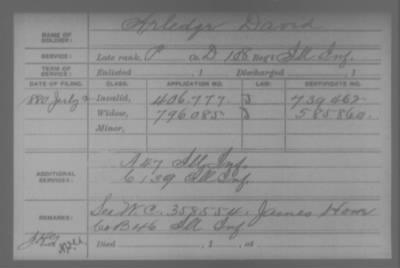 NAME OF SOLDIER: Arledge David
SERVICE: Late rank, P Co. D 106 Reg't Ill Inf.
TERM OF SERVICE: Enlisted , 1 Discharged , 1
DATE OF FILING. CLASS. APPLICATION NO. LAW. CERTIFICATE NO.
1880 July 2 Invalid, 406.777
Widow, 796085 585860
Minor,
ADDITIONAL SERVICES: A 47 Ill Inf.
C 139 Ill Inf.
REMARKS: See W.C. 358554. James
Co B 46 Ill Inf
Died , 1 , at